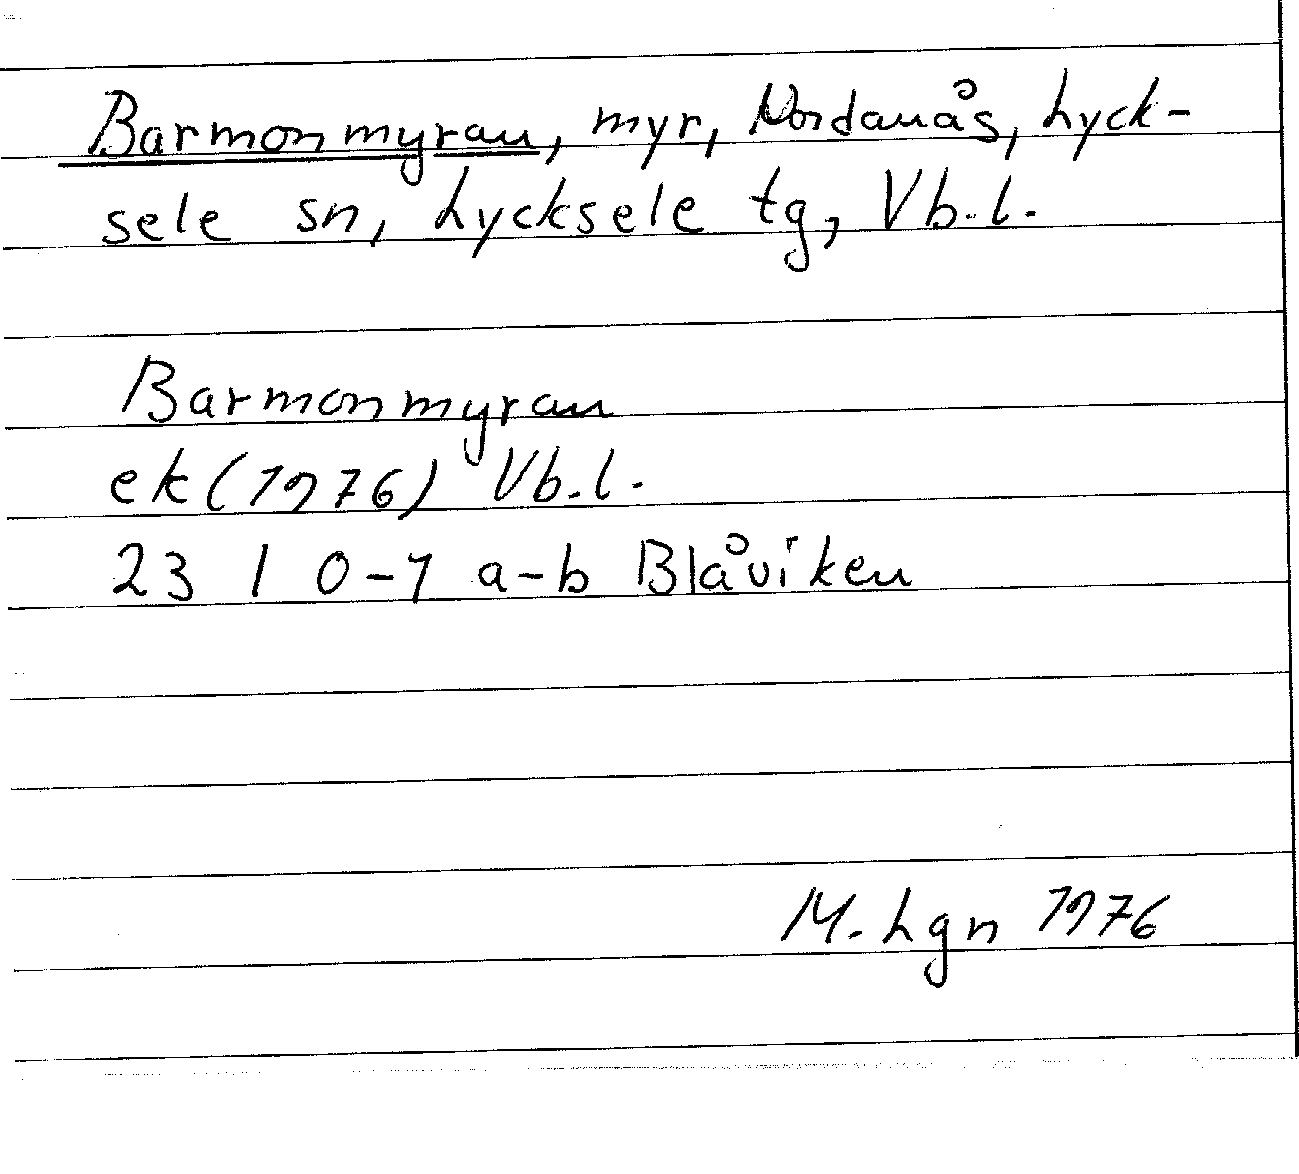 Barmonmyran, myr, Nordanås, Lyck-
sele sn, Lycksele tg, Vb.l.
Barmonmyran
ek (1976) Vb.l.
23 I 0-1 a-b Blåviken
M. Lgn 1976